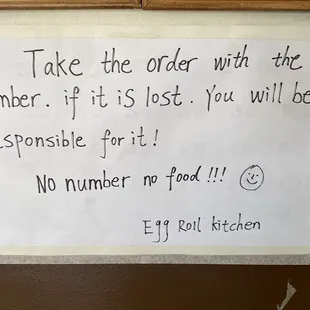 Take the order with the
mber. if it is lost. You will be
sponsible for it!
No number no food!!!
Egg Roll kitchen